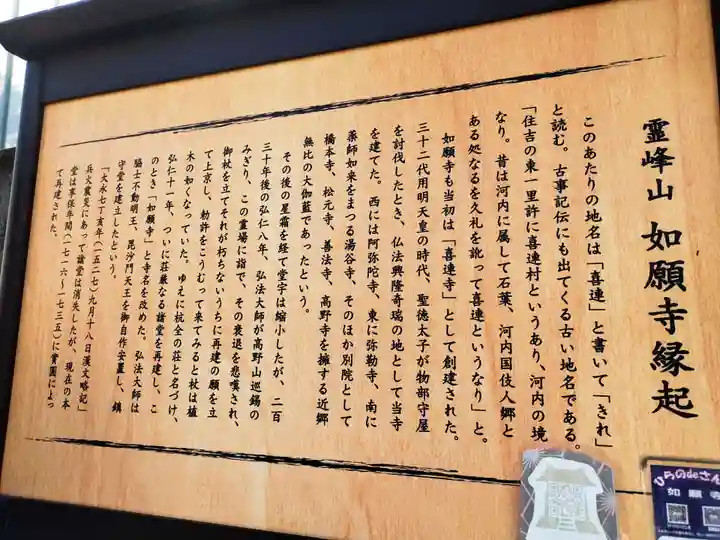 霊峰山 如願寺縁起
このあたりの地名は「喜連」と書いて「きれ」
と読む。古事記伝にも出てくる古い地名である。
「住吉の東一里許に喜連村というあり、河内の境
なり。昔は河内に属して石葉、河内国伎人郷と
ある処なるを久礼を訛って喜連というなり」と。
如願寺も当初は「喜連寺」として創建された。
三十二代用明天皇の時代、聖徳太子が物部守屋
を討伐したとき、仏法興隆奇瑞の地として当寺
を建てた。西には阿弥陀寺、東に弥勒寺、南に
薬師如来をまつる湯谷寺、そのほか別院として
橋本寺、松元寺、善法寺、高野寺を擁する近郷
無比の大伽藍であったという。
その後の星霜を経て堂宇は縮小したが、二百
三十年後の弘仁八年、弘法大師が高野山巡錫の
みぎり、この霊場に詣で、その衰退を悲嘆され、
御杖を立てそれが朽ちないうちに再建の願を立
て上京し、勅許をこうむって来てみると杖は植
木の如くなっていた。ゆえに杭全の荘と名づけ、
弘仁十一年、ついに荘厳なる諸堂を再建し、こ
のとき「如願寺」と寺名を改めた。弘法大師は
脇士不動明王、毘沙門天王を御自作安置し、鎮
守堂を建立したという。
「大永七丁亥年(一五二七)九月十八日漢文略記」
兵火震災にあって諸堂は消失したが、現在の本
堂は享保年間(一七一六〜一七三五)に賞園によっ
て再建された。
ひらのdeさん
如願寺